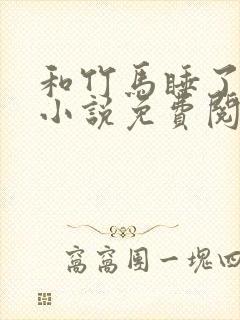 和竹馬睡了
小說免費閱
窩窩團一塊四